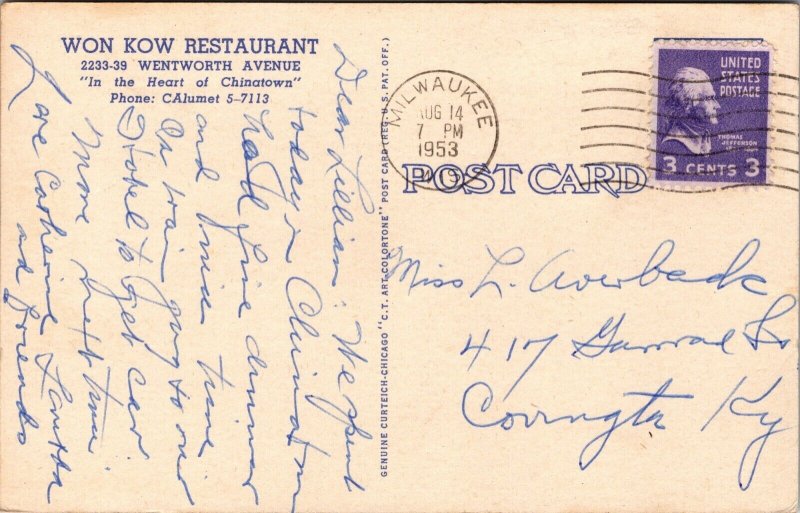 WON KOW RESTAURANT
2233-39 WENTWORTH AVENUE
"In the Heart of Chinatown"
Phone: CAlumet 5-7113
Dear Lillian: We spent
today in Chinatown
had fine dinner
and nice time
On way going to our
Hotel to get car
More next time
Love Catherine
and friends
GENUINE CURTEICH-CHICAGO "C.T. ART-COLORTONE" POST CARD (REG. U.S. PAT. OFF.)
MILWAUKEE
AUG 14
7 PM
1953
WIS
UNITED
STATES
POSTAGE
THOMAS
JEFFERSON
3 CENTS 3
POST CARD
Miss L. Averback
417
Covington Ky